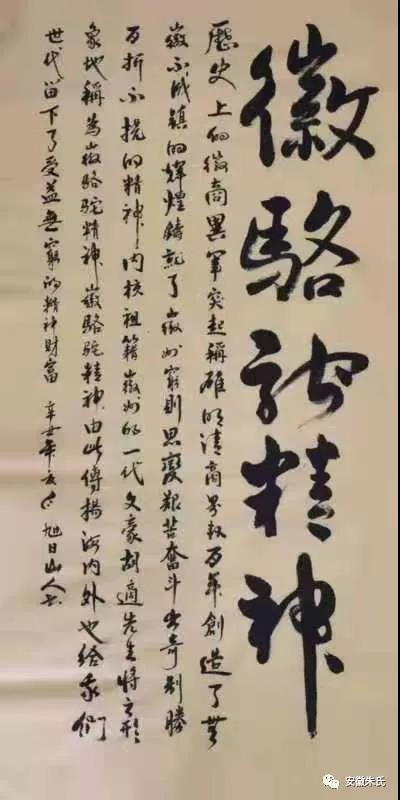 徽駱駝精神
歷史上的徽商異軍突起稱雄明清商界数百年創造了無
徽不成鎮的輝煌鑄就了徽州窮則思變艱苦奮斗出奇制勝
百折不撓的精神内核祖籍徽州的一代文豪胡適先生將之形
象地稱為徽駱駝精神徽駱駝精神由此傳揚海内外也給我們
世代留下了受益無窮的精神財富 辛丑年 旭日山人书
安徽朱氏